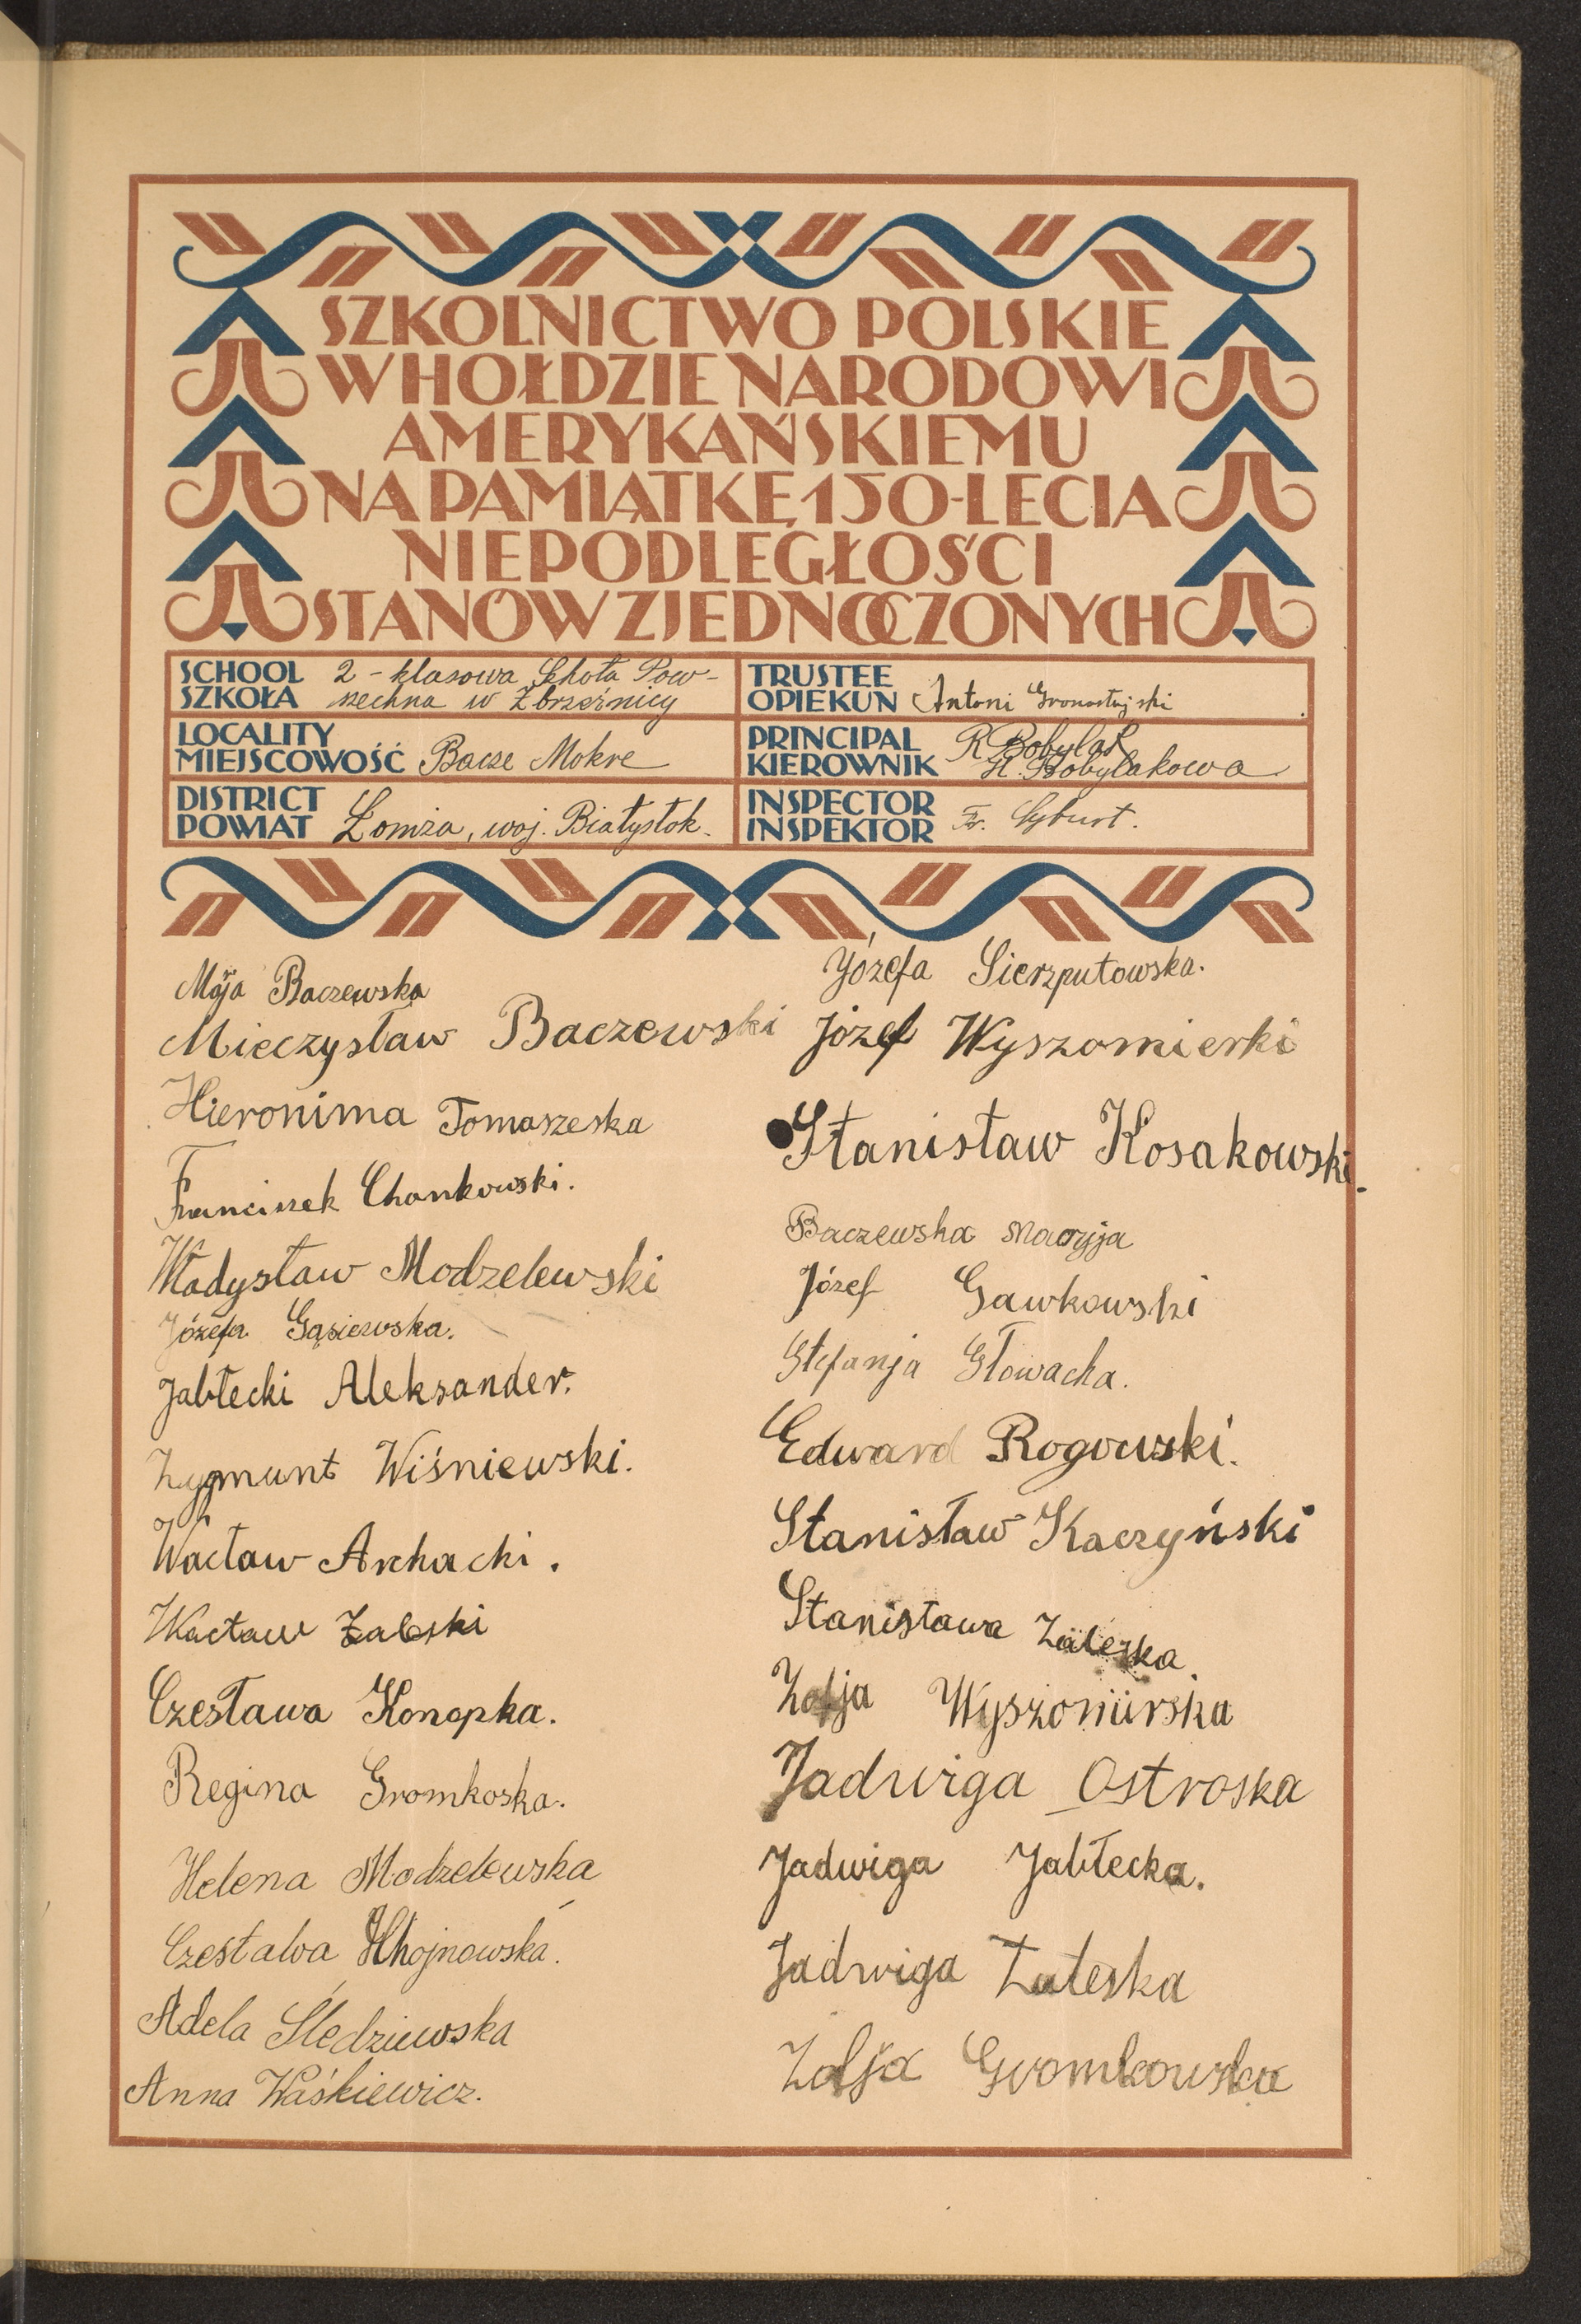 SZKOLNICTWO POLSKIE
W HOŁDZIE NARODOWI
AMERYKAŃSKIEMU
NA PAMIĄTKĘ 150-LECIA
NIEPODLEGŁOŚCI
STANÓW ZJEDNOCZONYCH
SCHOOL
SZKOŁA
2 - klasowa Szkoła Pow-
szechna w Zbrzeźnicy
LOCALITY
MIEJSCOWOŚĆ Bacze Mokre
DISTRICT
POWIAT Łomża, woj. Białystok.
TRUSTEE
OPIEKUN Antoni
PRINCIPAL
KIEROWNIK
R Bobylak
H. Bobylakowa
INSPECTOR
INSPEKTOR Fr.
Baczewska
Mieczysław Baczewski
Hieronima Tomaszeska
Franciszek Chankowski.
Władysław Modzelewski
Józefa Gąsiewska.
Jabłecki Aleksander.
Zygmunt Wiśniewski.
Wacław Archacki.
Wacław Zaleski
Czesława Konopka.
Regina Gromkoska.
Helena Modzelewska
Czesława Chojnowska.
Adela Śledziewska
Anna Waśkiewicz.
Józefa Sierzputowska.
Józef Wyszomierki
Stanisław Kosakowski.
Baczewska Maryja
Józef Gawkowski
Stefanja Głowacka.
Edward Rogowski.
Stanisław Kaczyński
Stanisława Zaleska
Zofja Wyszomirska
Jadwiga Ostroska
Jadwiga Jabłecka.
Jadwiga Zaleska
Zofja Gromkowska